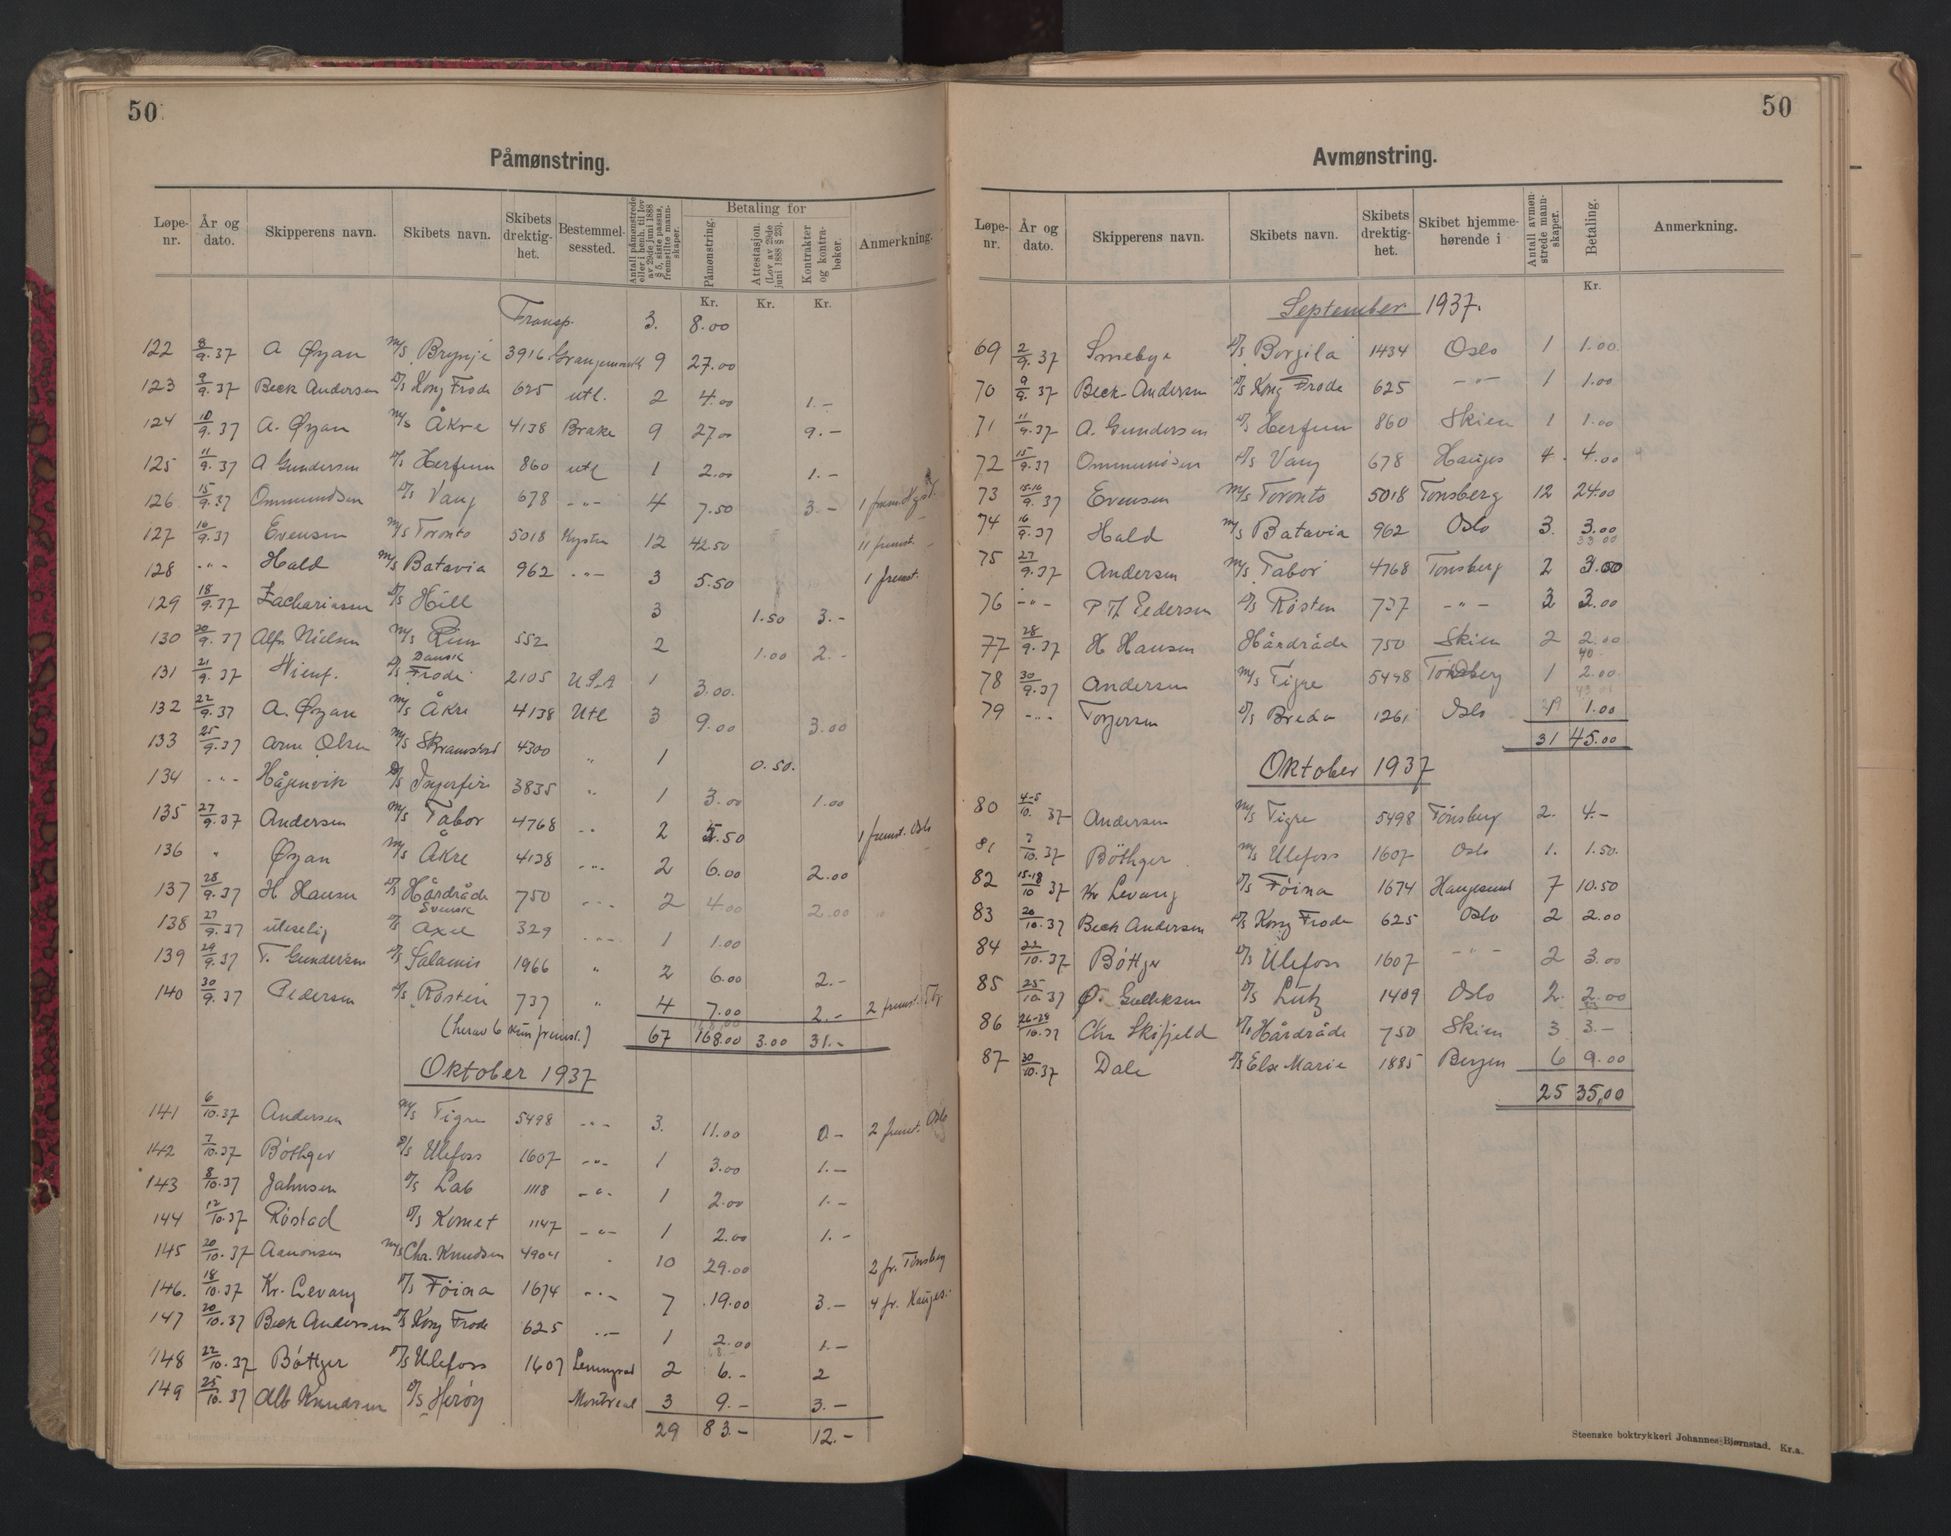 50
Påmønstring.
Løpe-nr. År og dato. Skipperens navn. Skibets navn. Skibets drektig-het. Bestemmel-sessted. Antall påmønstrede eller i henh. til lov av 29de juni 1888 § 5, siste passus, fremstilte mann-skaper. Betaling for Påmønstring. Attestasjon. (Lov av 29de juni 1888 § 23). Kontrakter og kontra-bøker. Anmerkning.
Kr. Kr. Kr.
Transp. 3. 8.00
122 8/9.37 A Øyan m/s Brynje 3916 Grangemouth 9 27.00
123 9/9.37 Beck Andersen d/s Kong Frode 625 utl. 2 4.00 1.-
124 10/9.37 A. Øyan m/s Åkre 4138 Brake 9 27.00 9.-
125 11/9.37 A Gundersen d/s Herfinn 860 utl 1 2.00 1.-
126 15/9.37 Ommundsen d/s Vang 678 -"- 4 7.50 3.- 1 frem.
127 16/9.37 Evensen m/s Toronto 5018 Kysten 12 42.50 11 fremst.
128 -"- Hald m/s Batavia 962 -"- 3 5.50 1 fremst.
129 18/9.37 Zachariassen d/s Hill 3 1.50 3.-
130 20/9.37 Alfr Nielsen m/s 552 2 1.00 2.-
131 21/9.37 d/s Dansk Frode 2105 USA 1 3.00.
132 22/9.37 A. Øyan m/s Åkre 4138 Utl 3 9.00 3.00
133 25/9.37 Arne Olsen m/s Skramstad 4300 " 1 0.50.
134 -"- Hågenvik d/s Ingerfire 3835 " 1 3.00 1.00
135 27/9.37 Andersen m/s Tabor 4768 -"- 2 5.50 1 fremst. Oslo
136 " Øyan m/s Åkre 4138 -"- 2 6.00 2.00
137 28/9.37 H Hansen d/s Hårdråde 750 -"- 2 4.00 2.00
138 27/9.37 uleselig d/s Svensk Axel 329 -"- 1 1.00
139 29/9.37 T. Gundersen d/s Salamis 1966 " 2 6.00 2.-
140 30/9.37 Pedersen d/s Røsten 737 " 4 7.00 2.- 2 fremst.
(herav 6 kun fremst.) 67 168.00 3.00 31.-
Oktober 1937
141 6/10.37 Andersen m/s Tigre 5498 -"- 3. 11.00 0.- 2 fremst. Oslo
142 7/10.37 Bøthger d/s Ulefoss 1607 -"- 1 3.00 1.-
143 8/10.37 Jahnsen d/s Lab 1118 -"- 1 2.00 1.-
144 12/10.37 Røstad d/s Komet 1147 -"- 1 2.00 1.-
145 20/10.37 Aanonsen m/s Chr. Knudsen 4904 " 10 29.00 2 fr. Tønsberg
146. 18/10.37 Kr. Levang d/s Føina 1674 -"- 7 19.00 3.- 4 fr. Hauges.
147 20/10.37 Beck Andersen d/s Kong Frode 625 -"- 1 2.00 1.-
148 22/10.37 Bøttger d/s Ulefoss 1607 Leningrad 2 6.- 2
149 25/10.37 Alb Knudsen d/s Herøy Montreal 3 9.- 3.-
29 83.- 12.-
50
Avmønstring.
Løpe-nr. År og dato. Skipperens navn. Skibets navn. Skibets drektig-het. Skibet hjemme-hørende i Antall avmøn-strede mann-skaper. Betaling. Anmerkning.
Kr.
September 1937.
69 2/9.37 Smebye d/s Borgila 1434 Oslo 1 1.00.
70 9/9.37 Beck-Andersen d/s Kong Frode 625 -"- 1 1.00
71 11/9.37 A. Gundersen d/s Herfinn 860 Skien 1 1.00
72 15/9.37 Ommundsen d/s Vang 678 Hauges 4. 4.00
73 15-16/9.37 Evensen m/s Toronto 5018 Tønsberg 12 24.00
74 16/9.37 Hald m/s Batavia 962 Oslo 3. 3.00
33.00
75 27/9.37 Andersen m/s Tabor 4768 Tønsberg 2 3.00
76 -"- P Pedersen d/s Røsten 737 -"- 3 3.00
77 28/9.37 H Hansen Hårdråde 750 Skien 2 2.00
40
78 30/9.37 Andersen m/s Tigre 5498 Tønsberg 1 2.00
79 -"- Torjersen d/s Breda 1261 Oslo 1.00
31 45.00
Oktober 1937
80 4-5/10.37 Andersen m/s Tigre 5498 Tønsberg 2. 4.-
81 7/10.37 Bøthger m/s Ulefoss 1607 Oslo 1. 1.50.
82 15-18/10 37 Kr Levang d/s Føina 1674 Haugesund 7 10.50
83 20/10.37 Beck Andersen d/s Kong Frode 625 Oslo 2 2.00
84 22/10.37 Bøttger d/s Ulefoss 1607 -"- 2 3.00
85 25/10.37 Ø. Gulliksen d/s Lutz 1409 Oslo 2. 2.00
86 26-29/10.37 Chr Skifjeld d/s Hårdråde 750 Skien 3 3.-
87 30/10.37 Dale d/s Else Marie 1885 Bergen 6 9.00
25 35,00
Steenske boktrykkeri Johannes Bjørnstad. Kr.a.